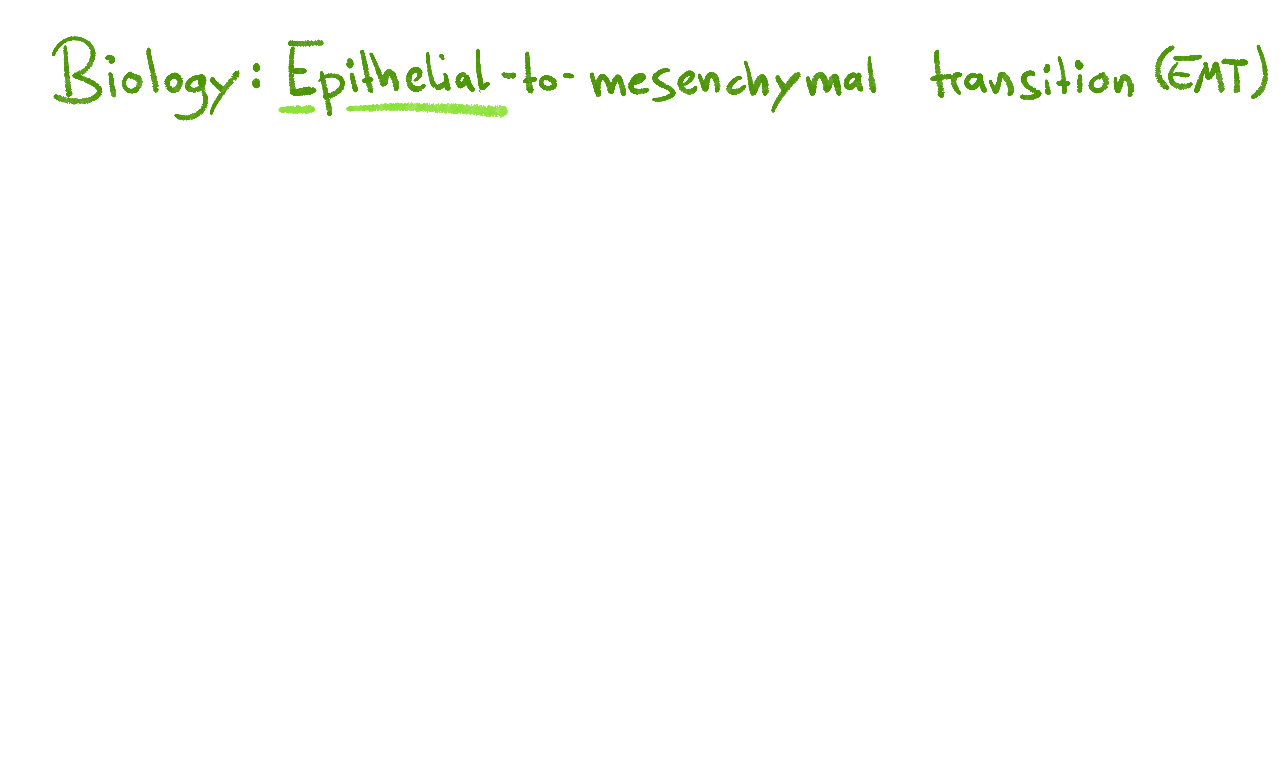 Biology: Epithelial-to-mesenchymal transition (EMT)